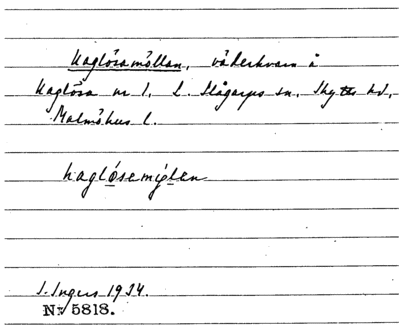 Haglösamöllan, väderkvarn å
Haglösa nr 1, L. Slågarps sn, Skytts hd,
Malmöhus l.
haglösemöļļan
I. Ingers 1934.
Nr 5818.